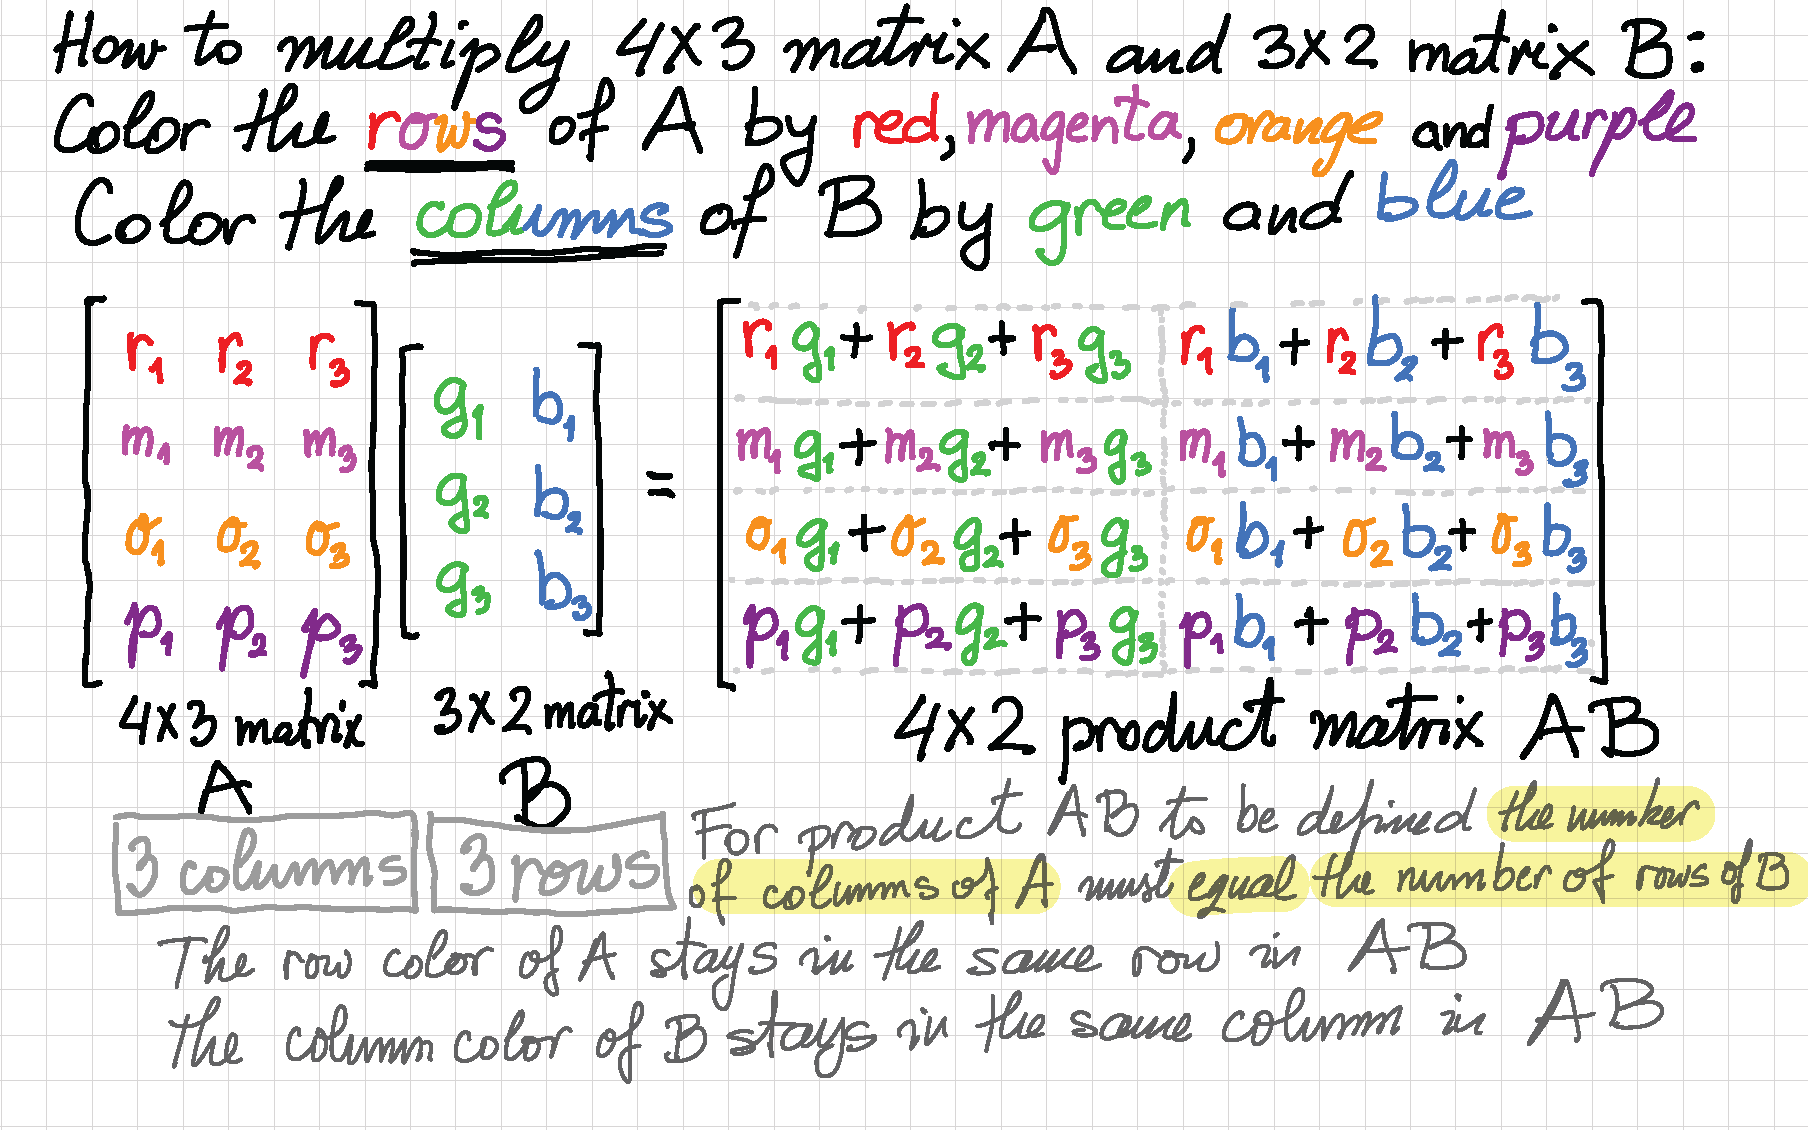 How to multiply 4×3 matrix A and 3×2 matrix B:
Color the rows of A by red, magenta, orange and purple
Color the columns of B by green and blue
r₁ r₂ r₃
m₁ m₂ m₃
o₁ o₂ o₃
p₁ p₂ p₃
g₁ b₁
g₂ b₂
g₃ b₃
=
r₁g₁+r₂g₂+r₃g₃ r₁b₁+r₂b₂+r₃b₃
m₁g₁+m₂g₂+m₃g₃ m₁b₁+m₂b₂+m₃b₃
o₁g₁+o₂g₂+o₃g₃ o₁b₁+o₂b₂+o₃b₃
p₁g₁+p₂g₂+p₃g₃ p₁b₁+p₂b₂+p₃b₃
4×3 matrix
A
3×2 matrix
B
4×2 product matrix AB
3 columns
3 rows
For product AB to be defined the number
of columns of A must equal the number of rows of B
The row color of A stays in the same row in AB
The column color of B stays in the same column in AB